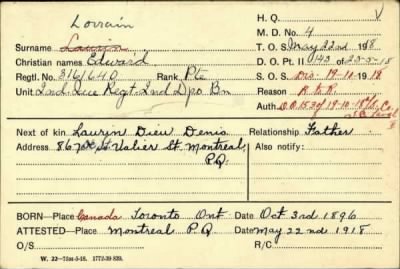 Lorrain
H. Q. V
M. D. No. 4
Surname Laurin
T. O. S. May 22nd 1918
Christian names Edward
D. O. Pt. II 143 of 23-5-18
Regtl. No. 3161640 Rank Pte
S. O. S. Dis. 19-11-1918
Unit 2nd Que Regt 2nd Dpo Bn
Reason R to R
Auth. D.O. 153 of 19-10-18
Next of kin Laurin Dieu Denis Relationship Father
Address 867 St Valier St. Montreal, Also notify:
P.Q.
BORN—Place Canada Toronto Ont Date Oct 3rd 1896
ATTESTED—Place Montreal P.Q Date May 22nd 1918
O/S R/C
W. 22—